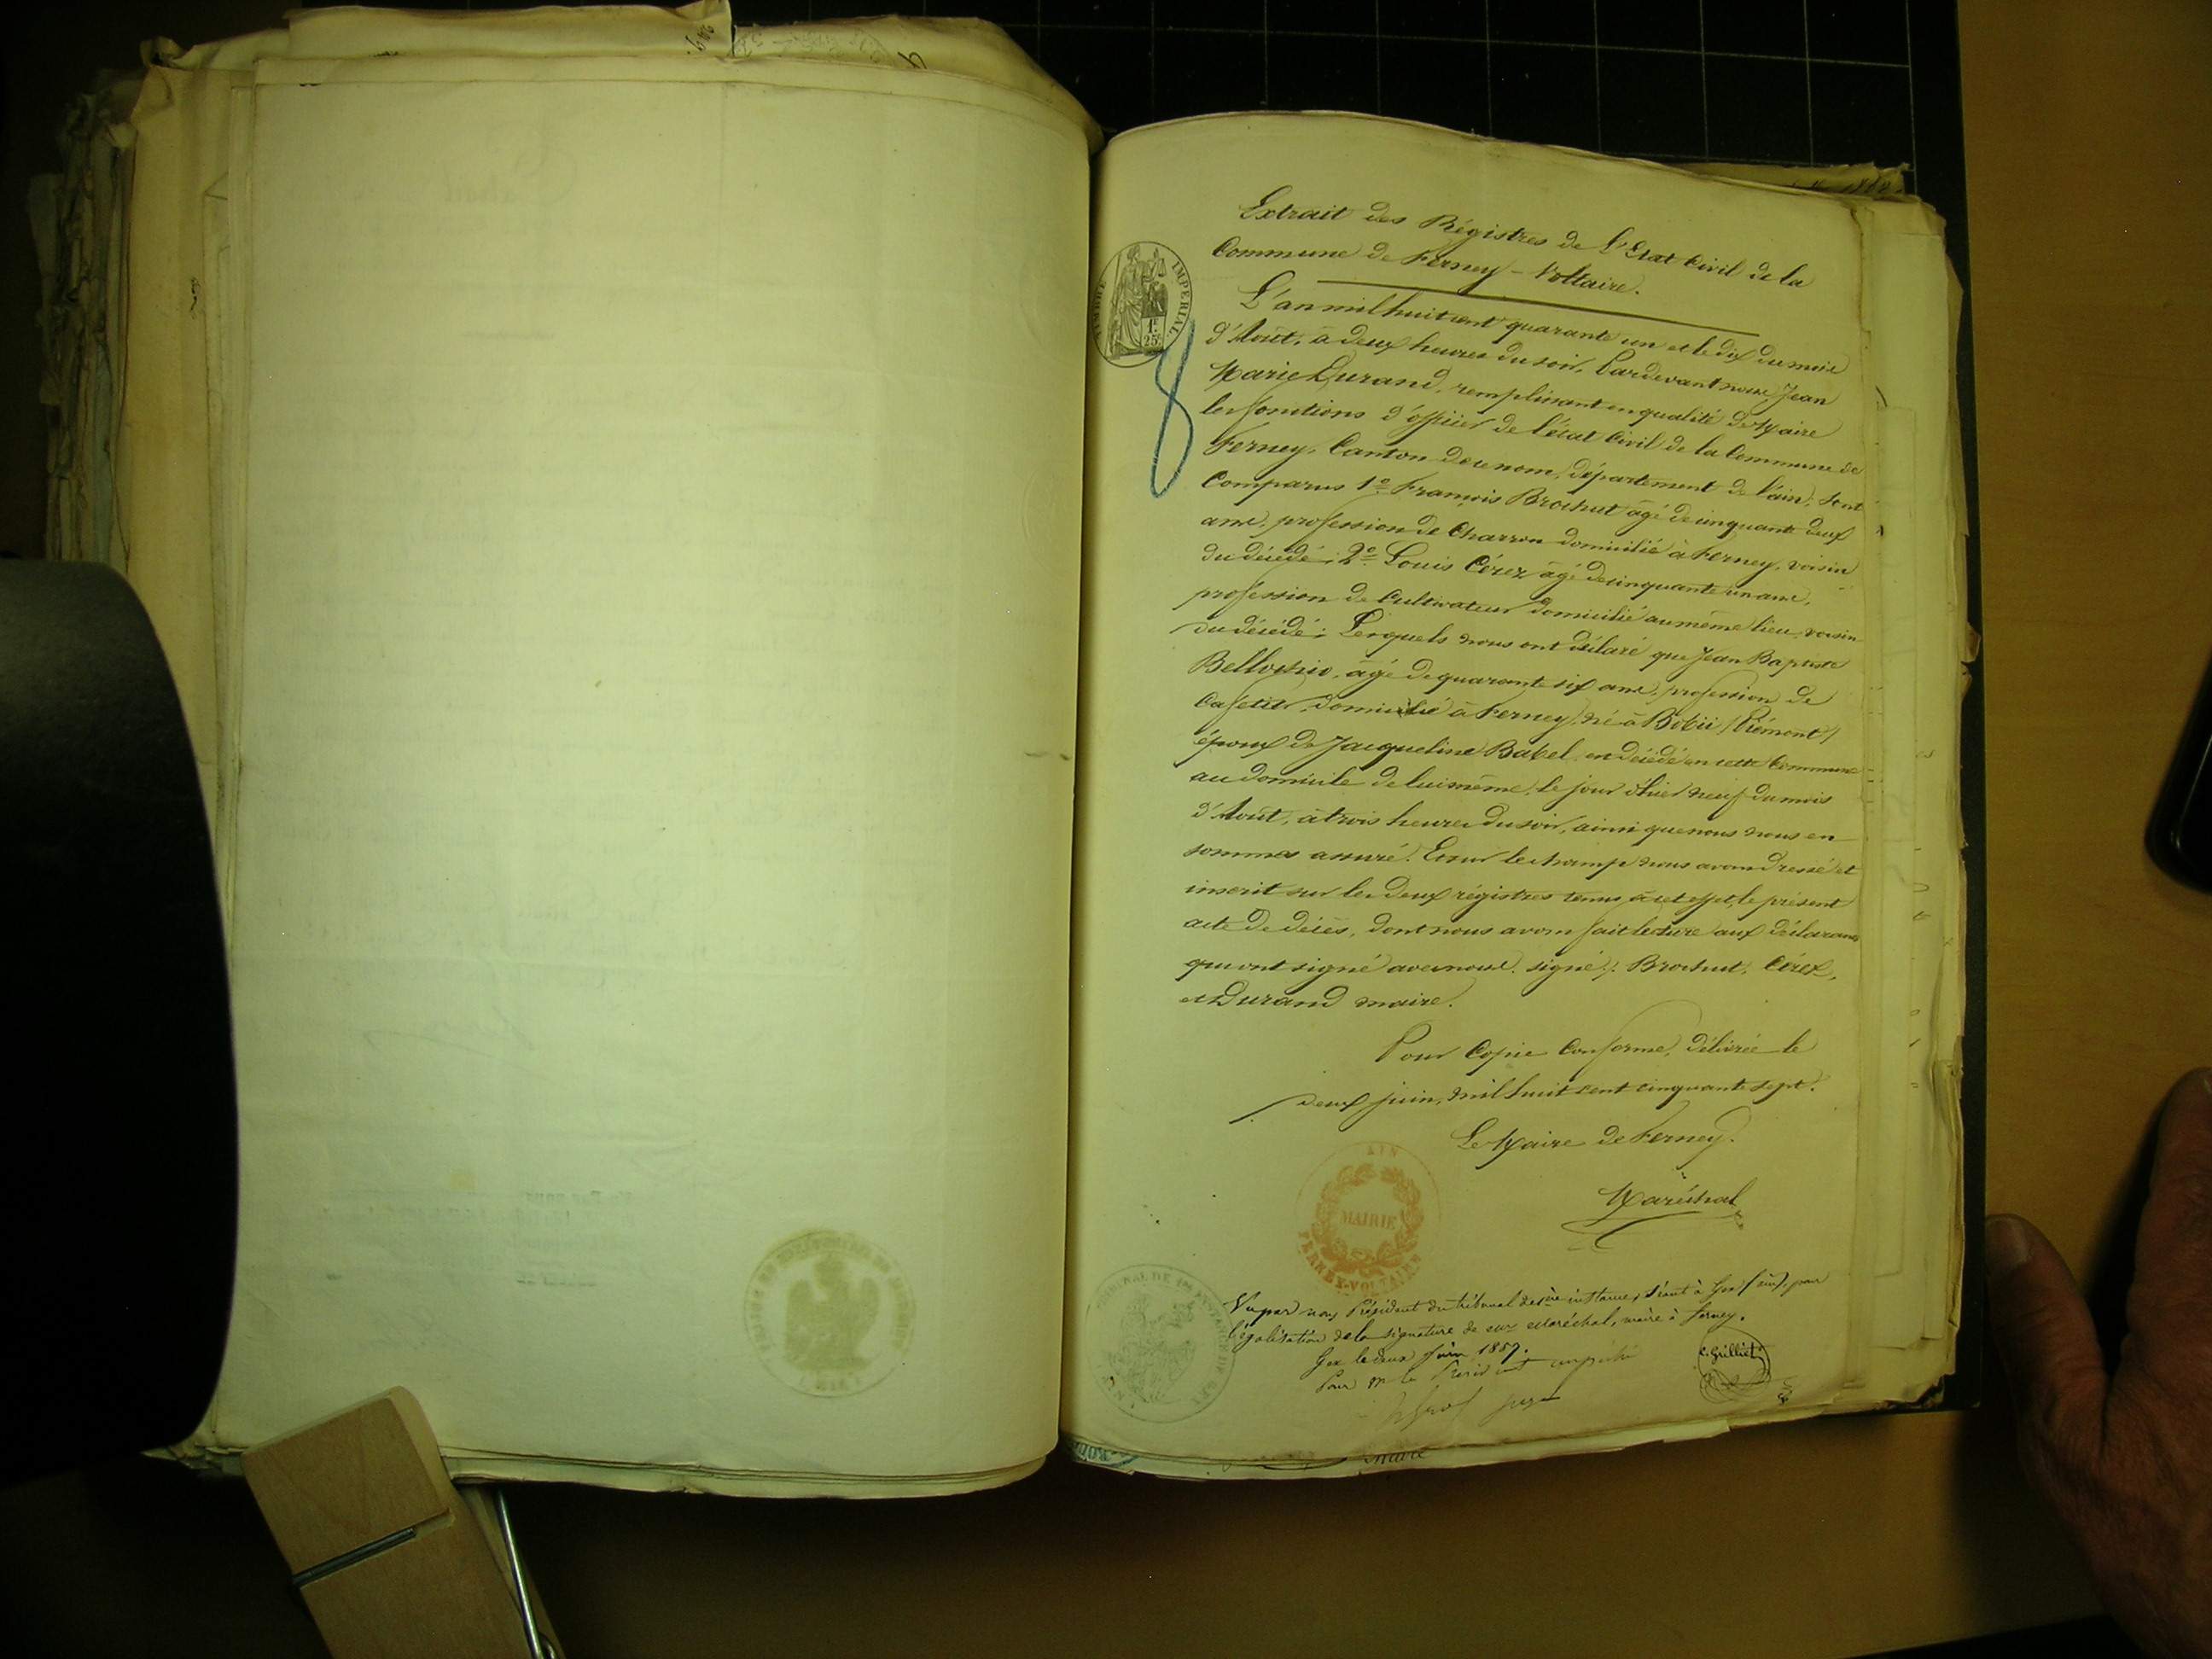 Extrait des Régistres de l'Etat Civil de la
Commune de Ferney-Voltaire.
TIMBRE IMPERIAL
1F.
25c
L'an mil huit cent quarante un et le dix du mois
d'Août, à deux heures du soir, Pardevant nous Jean
Marie Durand, remplissant en qualité de Maire
les fonctions d'officier de l'état Civil de la Commune de
Ferney, Canton de ce nom, département de l'ain; sont
Comparus 1º François Brochut âgé de cinquante deux
ans, profession de Charron domicilié à Ferney, voisin
du décédé; 2º Louis Cérez âgé de cinquante un ans,
profession de Cultivateur domicilié au même lieu, voisin
du décédé; Lesquels nous ont déclaré que Jean Baptiste
âgé de quarante six ans, profession de
Cafetier, domicilié à Ferney, né à (Piémont)
époux de Jacqueline Babel, est décédé en cette Commune
au domicile de lui même, le jour d'hier neuf du mois
d'Août, à trois heures du soir, ainsi que nous nous en
sommes assuré. Et sur le champ nous avons dressé et
inscrit sur les deux régistres tenus à cet effet, le présent
acte de décès, dont nous avons fait lecture aux déclarans
qui ont signé avec nous. signé: Brochut, Cérez,
et Durand maire.
Pour Copie Conforme, délivrée le
deux juin, mil huit cent cinquante sept.
Le Maire de Ferney.
Maréchal
AIN
MAIRIE
FERNEY-VOLTAIRE
TRIBUNAL DE 1RE INSTANCE DE GEX
Vu par nous Président du tribunal de 1ère instance, séant à Gex (ain), pour
légalisation de la signature de Maréchal, maire à Ferney.
Gex le deux Juin 1857.
Pour Mr le Président empêché
juge
C. Grilliet